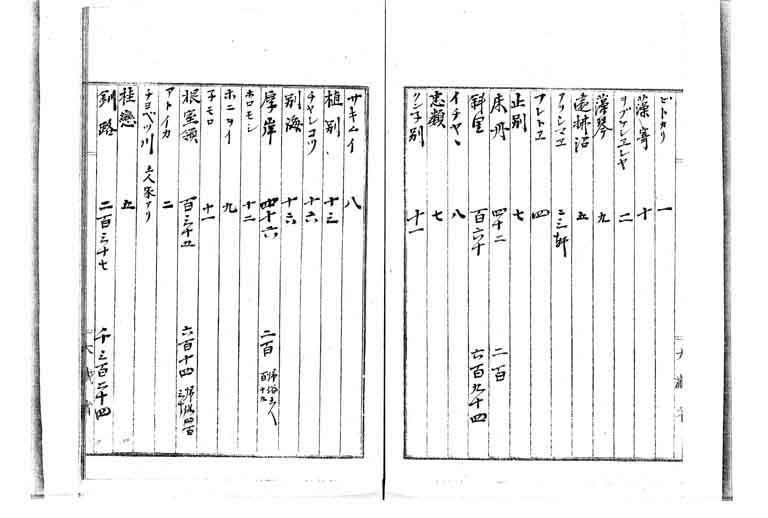 ビトカリ 一
藻寄 十
リブケレエレヤ 二
藻琴 九
濤沸沼 五
アシシマエ 二三軒
フレトエ 四
止別 七
床丹 四十二 二百
斜里 百六十 六百九十四
イチヤヽ 八
忠類 七
クン子別 十一
サキムイ 八
植別 十三
チヤレコツ 十六
別海 十六
厚岸 四十六 二百 帰俗土人百十九
ホロモシ 十二
ホニヲイ 九
子モロ 十一
根室領 百三十五 六百十四 帰俗四百三十
アトイカ 二
チヨベツ川 土人家アリ
桂恋 五
釧路 二百三十七 千三百二十四